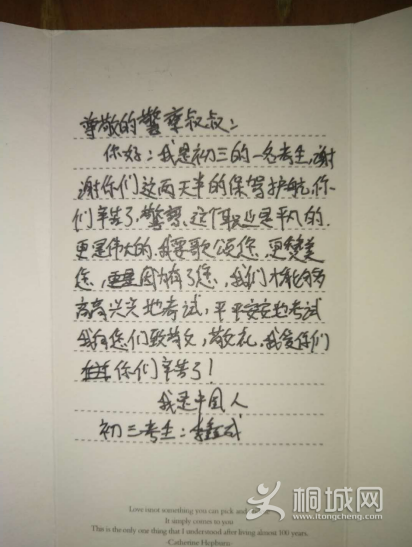 尊敬的警察叔叔：
你好：我是初三的一名考生，谢
谢你们这两天半的保驾护航，你
们辛苦了，警察，这个职业是平凡的，
更是伟大的，我要歌颂您，更赞美
您，更是因为有了您，我们才能够
高高兴兴地考试，平平安安地考试
我向您们致敬，敬礼，我爱你们
你们辛苦了！
我是中国人
初三考生：李
Love isnot something you can pick and
It simply comes to you
This is the only one thing that I understood after living almost 100 years.
-Catherine Hepburn-
桐城网
www.itongcheng.com